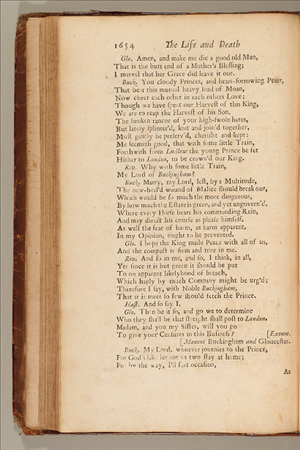 1654 The Life and Death
Glo. Amen, and make me die a good old Man,
That is the butt end of a Mother's Blessing;
I marvel that her Grace did leave it out.
Buck. You cloudy Princes, and heart-sorrowing Peers,
That bear this mutual heavy load of Moan,
Now cheer each other in each others Love;
Though we have spent our Harvest of this King,
We are to reap the Harvest of his Son.
The broken rancor of your high-swoln hates,
But lately splinter'd, knit and join'd together,
Must gently be preserv'd, cherisht and kept:
Me seemeth good, that with some little Train,
Forthwith from Ludlow the young Prince be fet
Hither to London, to be crown'd our King.
Riv. Why with some little Train,
My Lord of Buckingham?
Buck. Marry, my Lord, lest, by a Multitude,
The new-heal'd wound of Malice should break out,
Which would be so much the more dangerous,
By how much the Estate is green, and yet ungovern'd.
Where every Horse bears his commanding Rein,
And may direct his course as please himself,
As well the fear of harm, as harm apparent,
In my Opinion, ought to be prevented.
Glo. I hope the King made Peace with all of us,
And the compact is firm and true in me.
Riv. And so in me, and so, I think, in all,
Yet since it is but green it should be put
To no apparent likelyhood of breach,
Which haply by much Company might be urg'd;
Therefore I say, with Noble Buckingham,
That it is meet so few should fetch the Prince.
Hast. And so say I.
Glo. Then be it so, and go we to determine
Who they shall be that streight shall post to London.
Madam, and you my Sister, will you go
To give your Censures in this Business? [Exeunt.
[Manent Buckingham and Gloucester.
Buck. My Lord, whoever journies to the Prince,
For God's sake let not us two stay at home;
For by the way, I'll sort occasion,
As